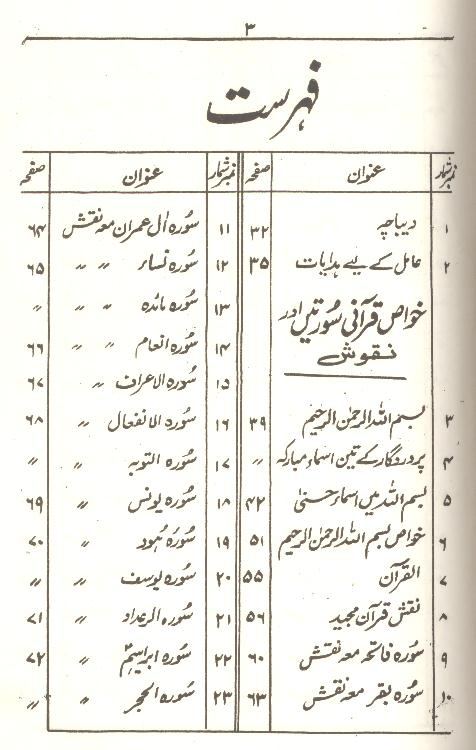 ۳
فہرست
نمبر شمار عنوان صفحہ
۱ دیباچہ ۳۲
۲ عامل کے لیے ہدایات ۳۵
خواص قرآنی سُورتیں اور
نقوش
۳ بسم اللہ الرحمٰن الرحیم ۳۹
۴ پروردگار کے تین اسماء مبارکہ 〃
۵ بسم اللہ میں اسماء حسنیٰ ۴۲
۶ خواص بسم اللہ الرحمٰن الرحیم ۵۱
۷ القرآن ۵۵
۸ نقش قرآن مجید ۵۶
۹ سُورہ فاتحہ معہ نقش ۶۰
۱۰ سُورہ بقر معہ نقش ۶۳
نمبر شمار عنوان صفحہ
۱۱ سُورہ اٰل عمران معہ نقش ۶۴
۱۲ سُورہ نساء 〃 〃 ۶۵
۱۳ سُورہ مائدہ 〃 〃 〃
۱۴ سُورہ انعام 〃 〃 ۶۶
۱۵ سُورہ الاعراف 〃 ۶۷
۱۶ سُورہ الانفعال 〃 ۶۸
۱۷ سُورہ التوبہ 〃 〃
۱۸ سُورہ یونس 〃 ۶۹
۱۹ سُورہ ہُود 〃 ۷۰
۲۰ سُورہ یوسف 〃 〃
۲۱ سُورہ الرعداد 〃 ۷۱
۲۲ سُورہ ابراہیمؑ 〃 ۷۲
۲۳ سُورہ الحجر 〃 〃